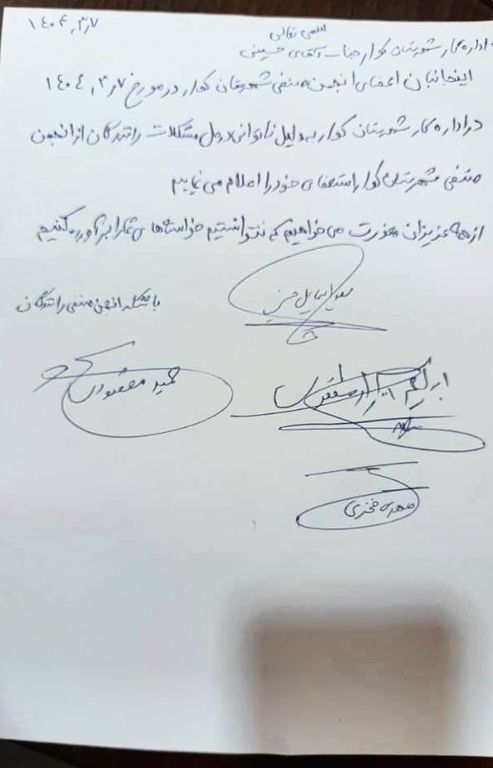 ۱۴۰۴,۳,۷
بسمی تعالی
اداره کار شهرستان کوار جناب آقای حسینی
اینجانبان اعضای انجمن صنفی شهرستان کوار در مورخ ۱۴۰۴,۳,۷
در اداره کار شهرستان کوار به دلیل ناتوانی در حل مشکلات رانندگان از انجمن
صنفی شهرستان کوار استعفای خود را اعلام می نماییم
از همه عزیزان معذرت می خواهیم که نتوانستیم خواسته های شما را برآورده کنیم
با تشکر انجمن صنفی رانندگان
حمید مقصودی
ابراهیم
مهدی فخری